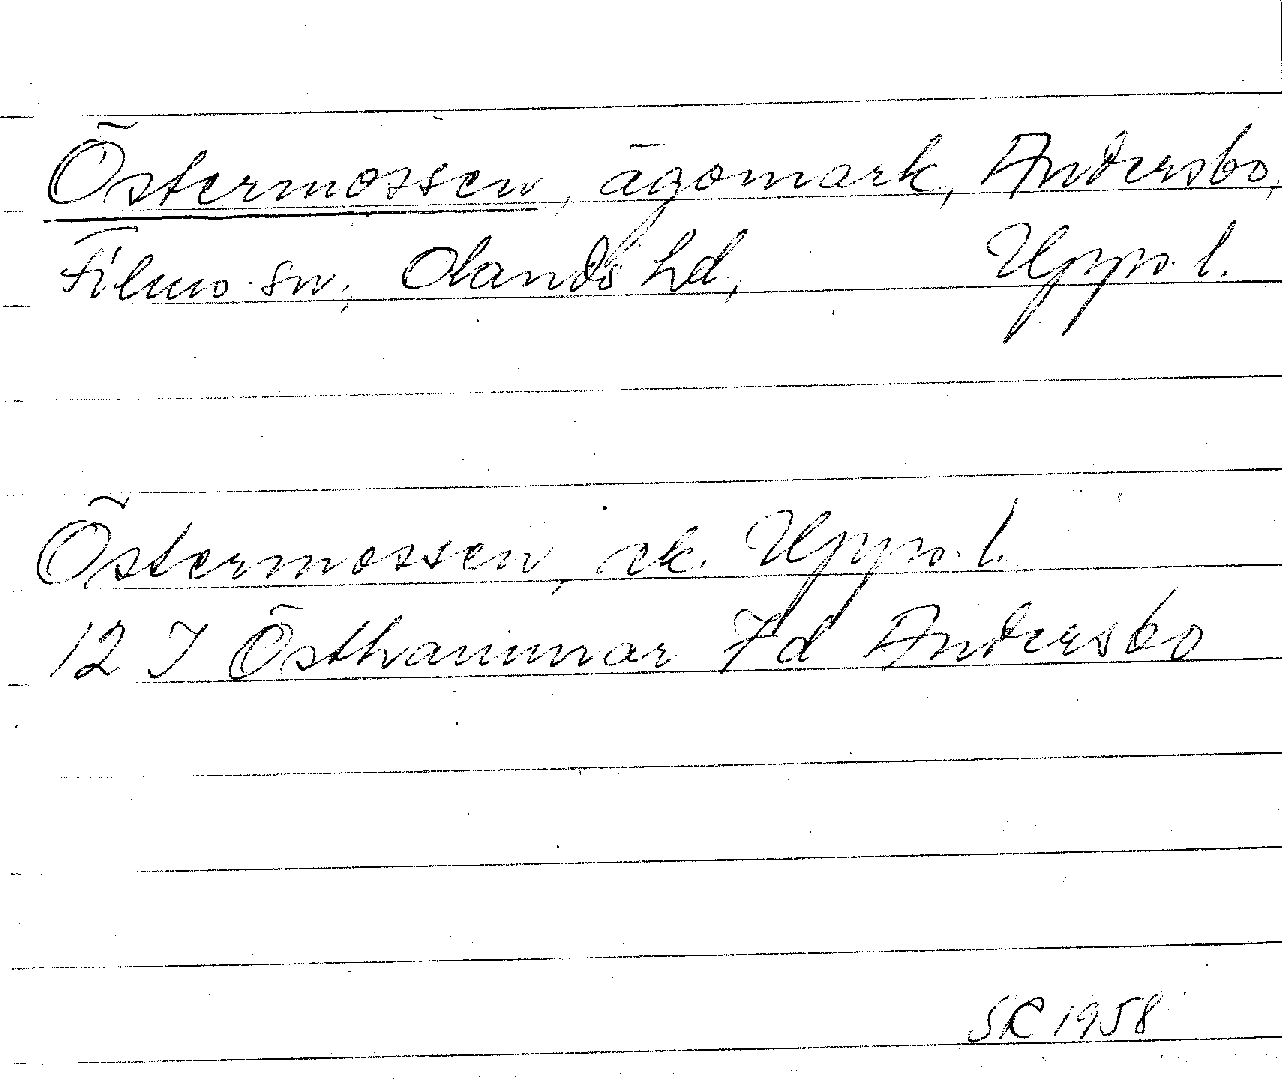 Östermossen, ägomark, Andersbo,
Films sn, Olands hd, Upps. l.
Östermossen, ek. Upps. l.
12 I Östhammar 7 d Andersbo
SR 1958